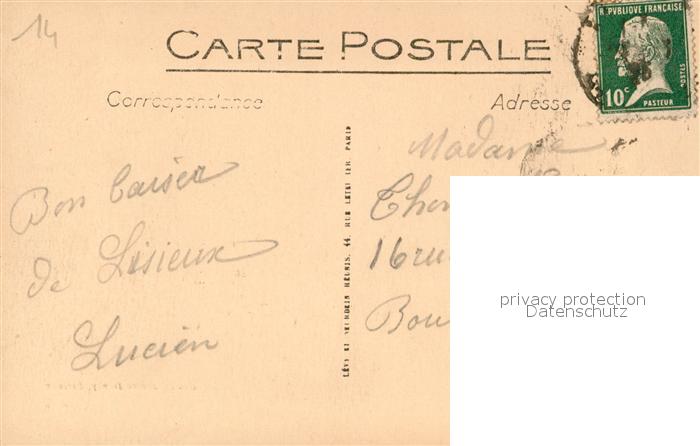 14
CARTE POSTALE
RÉPUBLIQUE FRANÇAISE
POSTES
10c
PASTEUR
Correspondance
Adresse
Bon baiser
de Lisieux
Lucien
LÉVY ET NEURDEIN RÉUNIS, 44, RUE LETELLIER, PARIS
Madame
16 rue
privacy protection
Datenschutz